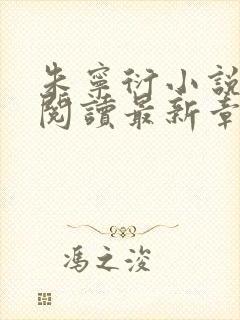 朱寧衍小說
閱讀最新章
馮之浚